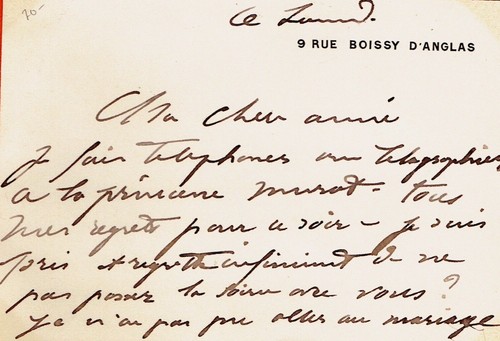 70-
Ce Lundi.
9 RUE BOISSY D'ANGLAS
Ma chere amie
Je fais telephoner ou telegraphier
a la princesse Murat - tous
mes regrets pour ce soir - je suis
pris et regrette infiniment de ne
pas passer la soiree avec vous?
Je n'ai pas pu aller au mariage